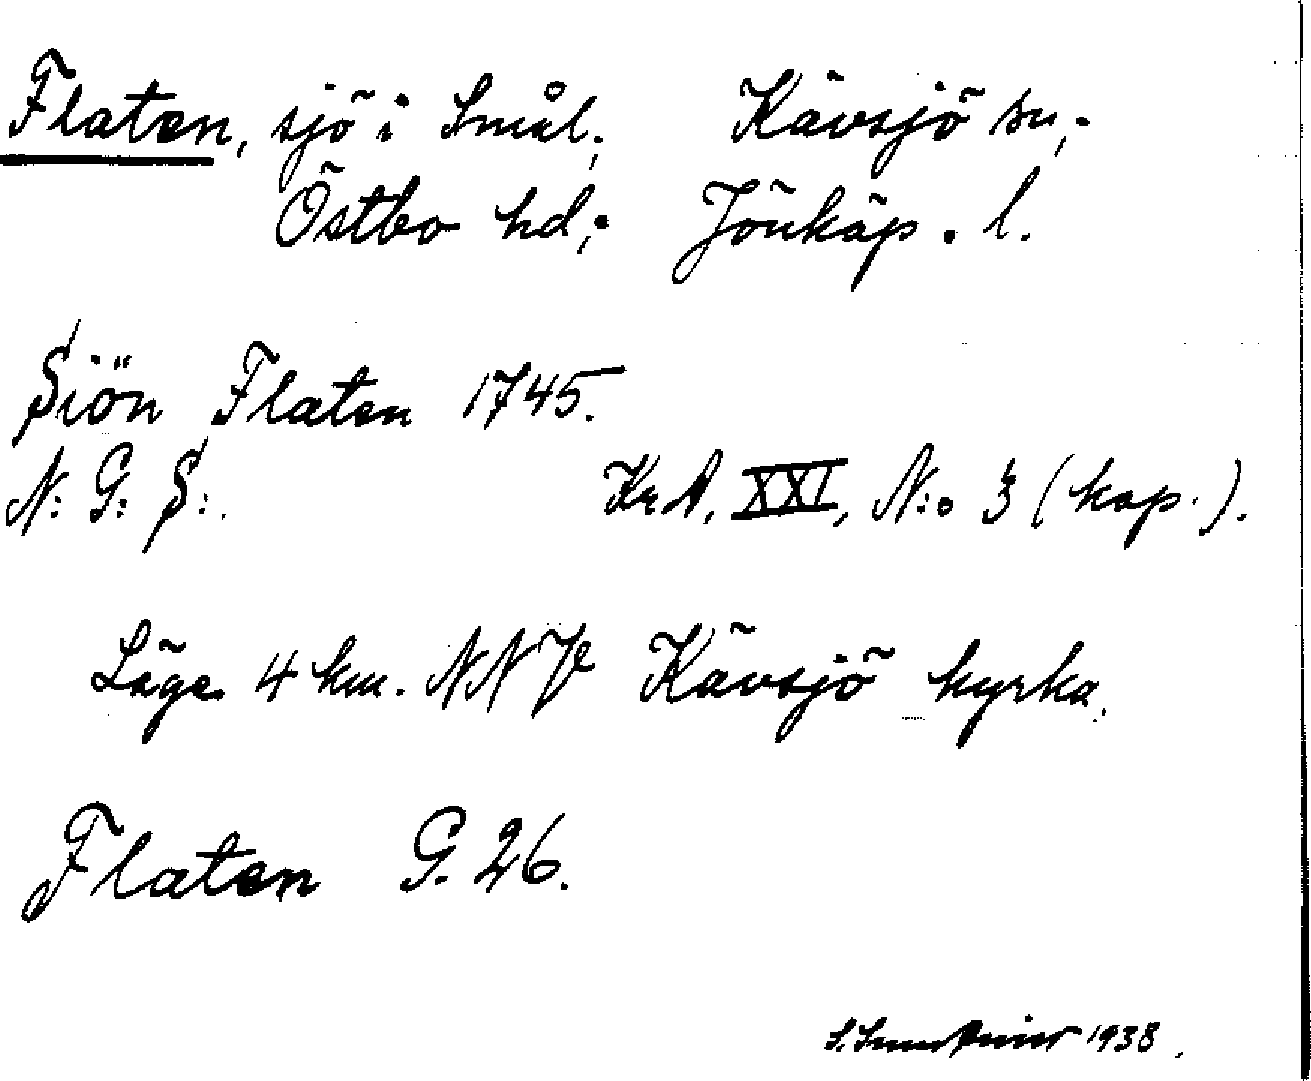 Flaten, sjö i Smål. Kävsjö sn;
Östbo hd; Jönköp. l.
Siön Flaten 1745.
N: G: S:. Kr.A. XXI, N:o 3 (kop.).
Läge 4 km. NNV Kävsjö kyrka.
Flaten G. 26.
S. 1938.